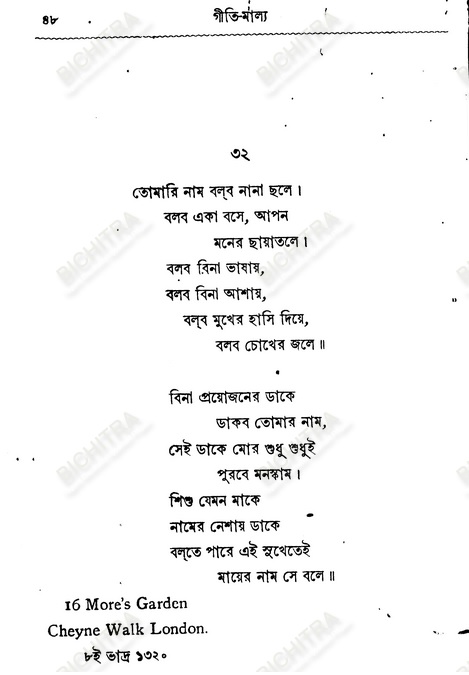 ৪৮ গীতি-মাল্য
৩২
তোমারি নাম বল্‌ব নানা ছলে।
বলব একা বসে, আপন
মনের ছায়াতলে।
বলব বিনা ভাষায়,
বলব বিনা আশায়,
বল্‌ব মুখের হাসি দিয়ে,
বলব চোখের জলে॥
বিনা প্রয়োজনের ডাকে
ডাকব তোমার নাম,
সেই ডাকে মোর শুধু শুধুই
পূরবে মনস্কাম।
শিশু যেমন মাকে
নামের নেশায় ডাকে
বল্‌তে পারে এই সুখেতেই
মায়ের নাম সে বলে॥
16 More's Garden
Cheyne Walk London.
৮ই ভাদ্র ১৩২০
BICHITRA
BICHITRA
BICHITRA
BICHITRA
BICHITRA
BICHITRA
BICHITRA
BICHITRA